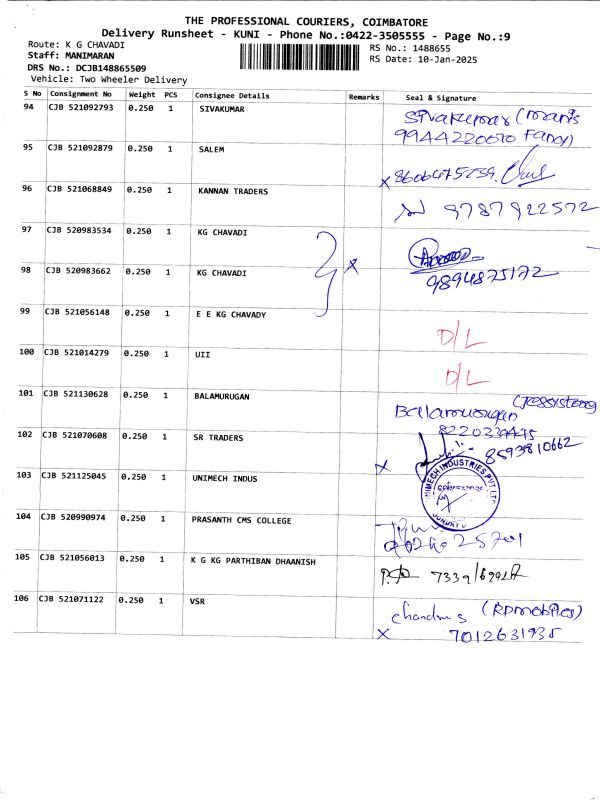 THE PROFESSIONAL COURIERS, COIMBATORE
Delivery Runsheet - KUNI - Phone No.:0422-3505555 - Page No.:9
Route: K G CHAVADI
RS No.: 1488655
Staff: MANIMARAN
RS Date: 10-Jan-2025
DRS No.: DCJB148865509
Vehicle: Two Wheeler Delivery
S No Consignment No Weight PCS Consignee Details Remarks Seal & Signature
94 CJB 521092793 0.250 1 SIVAKUMAR
Sivakumar
95 CJB 521092879 0.250 1 SALEM
96 CJB 521068849 0.250 1 KANNAN TRADERS
9787922572
97 CJB 520983534 0.250 1 KG CHAVADI
98 CJB 520983662 0.250 1 KG CHAVADI
9894875172
99 CJB 521056148 0.250 1 E E KG CHAVADY
D/L
100 CJB 521014279 0.250 1 UII
D/L
101 CJB 521130628 0.250 1 BALAMURUGAN
102 CJB 521070608 0.250 1 SR TRADERS
8593810662
103 CJB 521125045 0.250 1 UNIMECH INDUS
UNIMECH INDUSTRIES PVT LTD
COIMBATORE
104 CJB 520990974 0.250 1 PRASANTH CMS COLLEGE
105 CJB 521056013 0.250 1 K G KG PARTHIBAN DHAANISH
106 CJB 521071122 0.250 1 VSR
(Rpmobiles)
7012631935